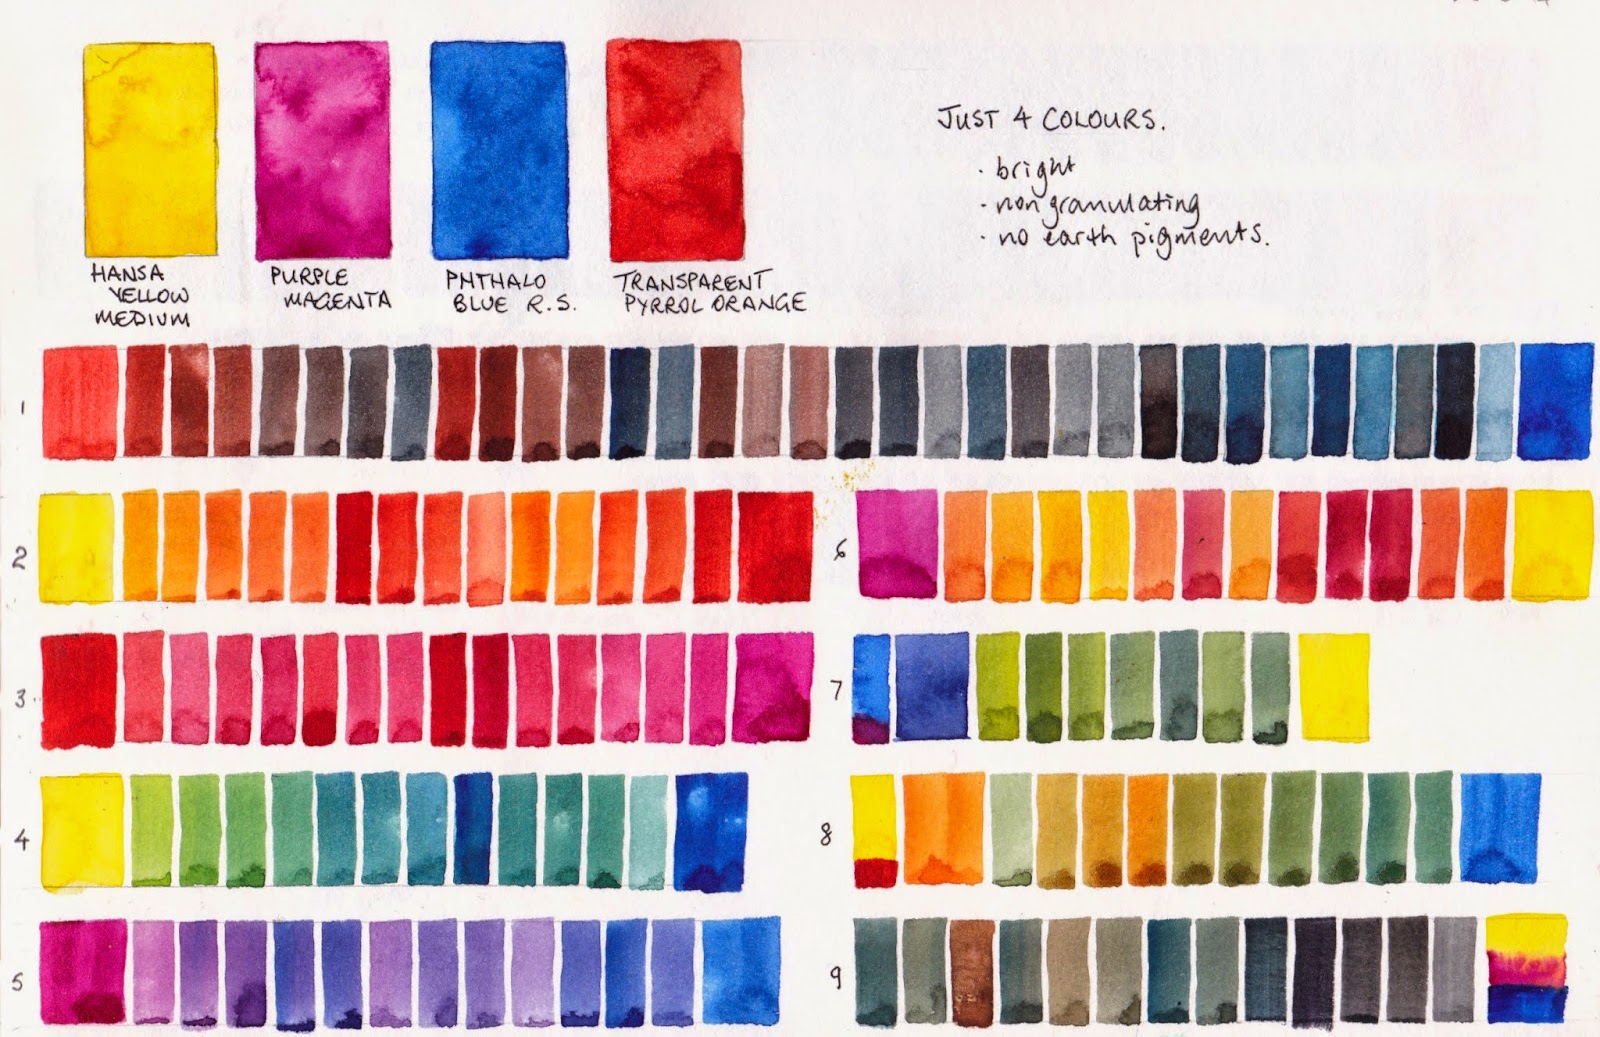 HANSA
YELLOW
MEDIUM
PURPLE
MAGENTA
PHTHALO
BLUE R.S.
TRANSPARENT
PYRROL ORANGE
JUST 4 COLOURS.
· bright
· non granulating
· no earth pigments.
1
2
6
3
7
4
8
5
9